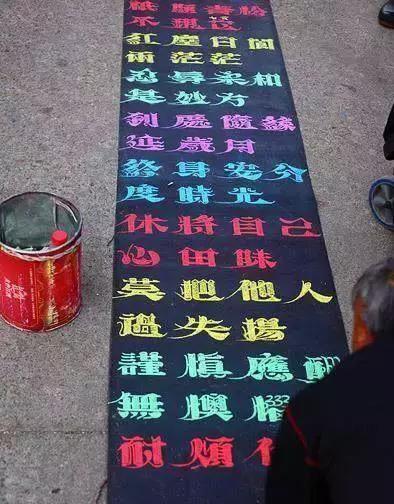 青松
不
紅塵白
兩茫茫
忍辱柔和
是妙方
到處隨緣
延歲月
終身安分
度時光
休將自己
心田昧
莫把他人
過失揚
謹慎應酬
無懊惱
耐煩作